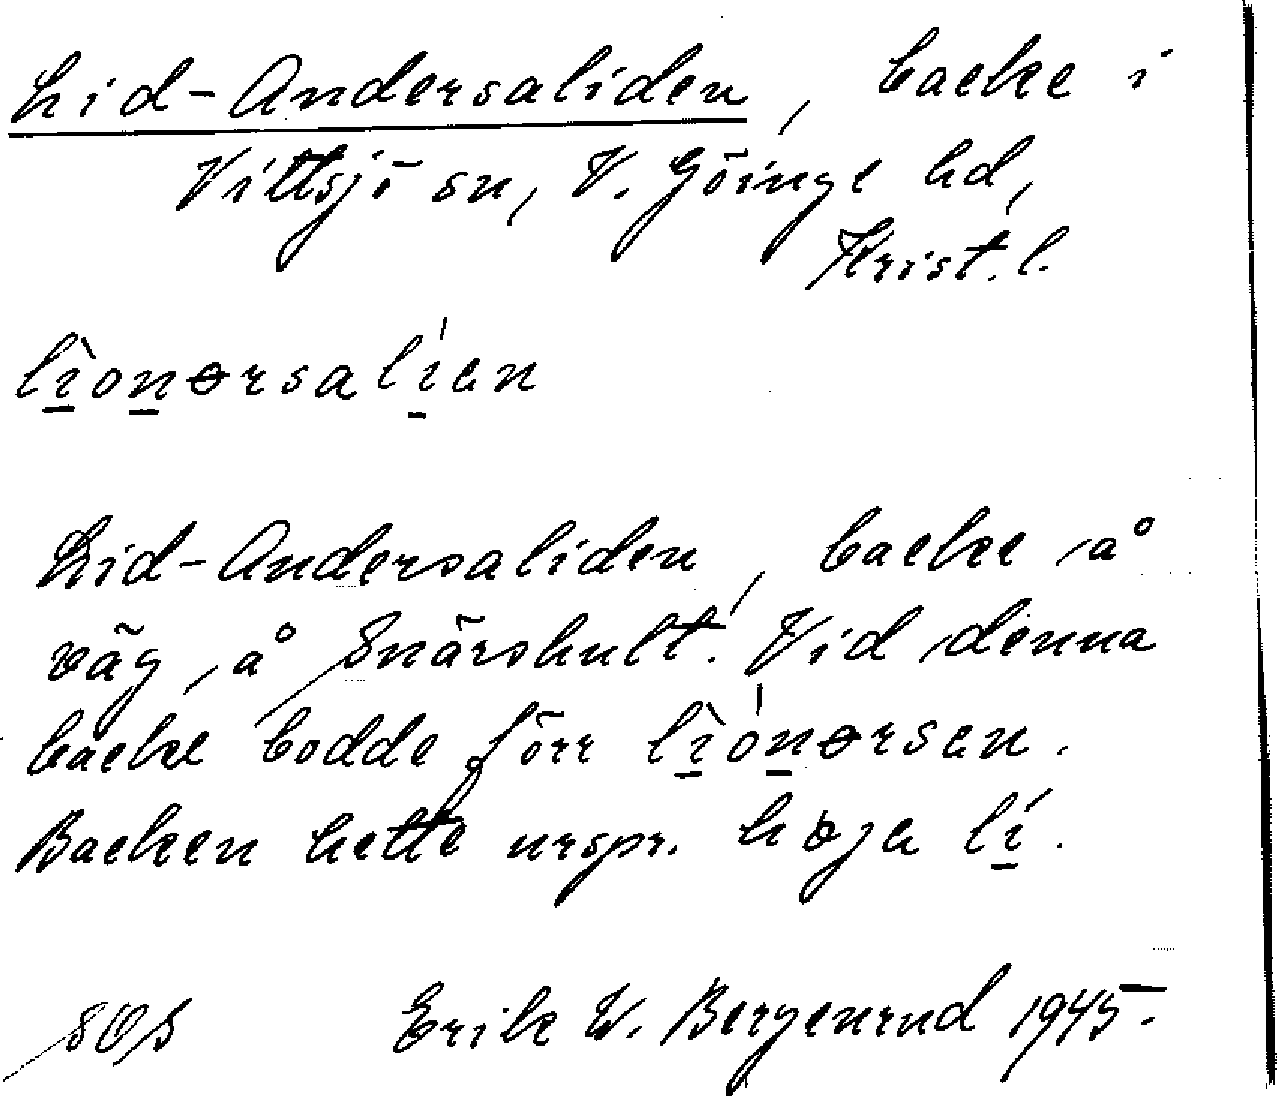 Lid-Andersaliden, backe i
Vittsjö sn, V. Göinge hd,
Krist. l.
lìonɵrsalíen
Lid-Andersaliden, backe å
väg å Snärshult. Vid denna
backe bodde förr lìónɵrsen.
Backen hette urspr. høja lí.
SOS Erik W. Bergenrud 1945.